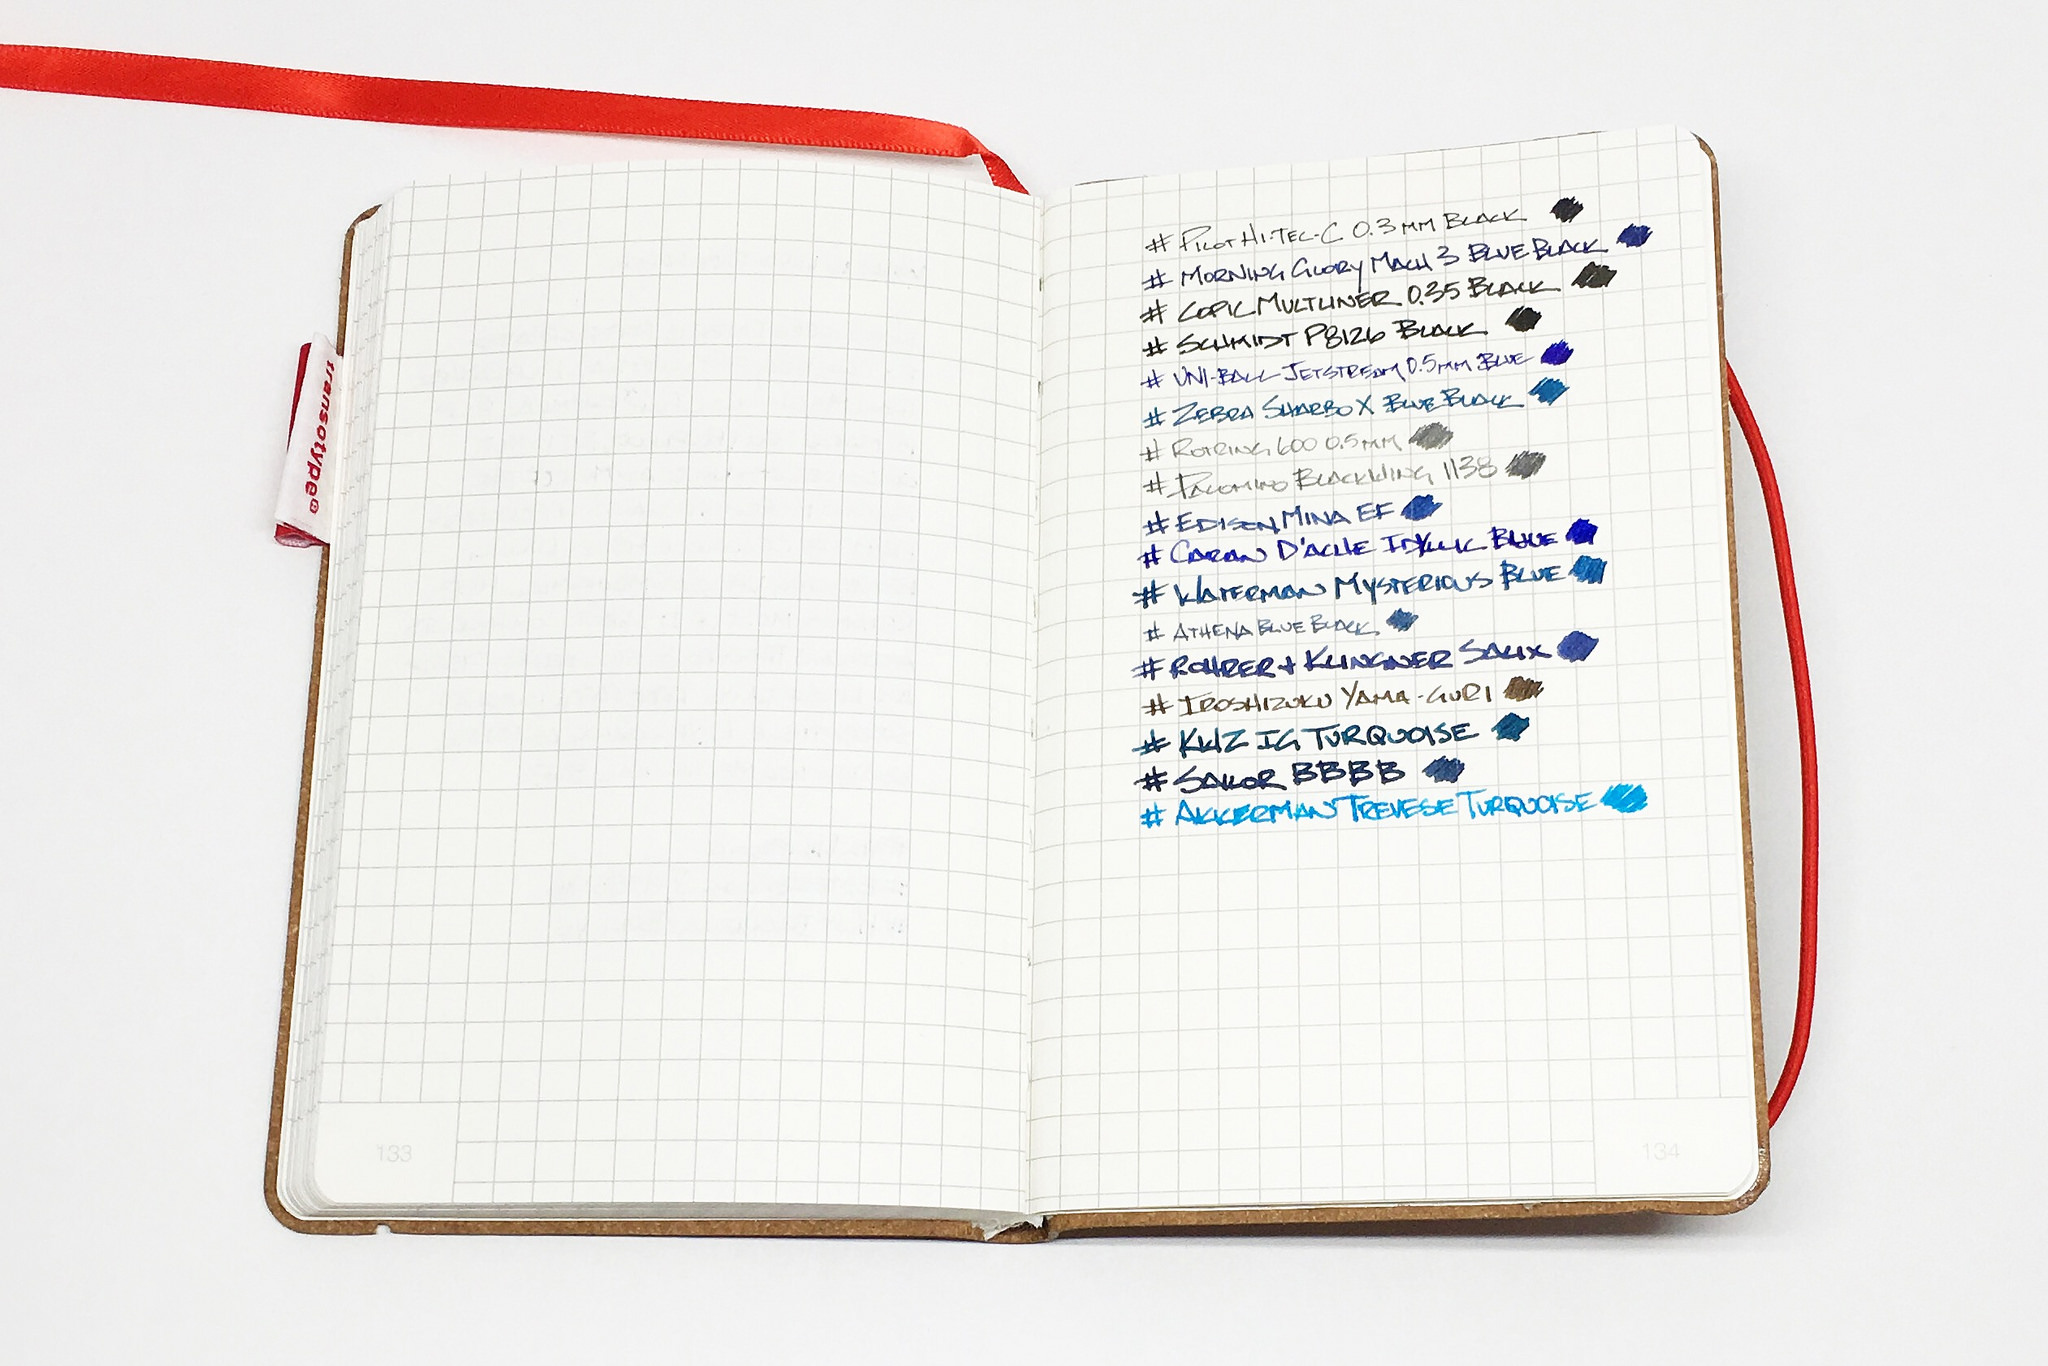 transotype®
# PILOT HI-TEC-C 0.3MM BLACK
# MORNING GLORY MACH 3 BLUE BLACK
# COPIC MULTLINER 0.35 BLACK
# SCHMIDT P8126 BLACK
# UNI-BALL JETSTREAM 0.5MM BLUE
# ZEBRA SHARBO X BLUE BLACK
# ROTRING 600 0.5MM
# PALOMINO BLACKWING 1138
# EDISON MINA EF
# CARAN D'ACHE IDYLLIC BLUE
# WATERMAN MYSTERIOUS BLUE
# ATHENA BLUE BLACK
# ROHRER + KLINGNER SALIX
# IROSHIZUKU YAMA-GURI
# KWZ IG TURQUOISE
# SAILOR BBBB
# AKKERMAN TREVESE TURQUOISE
133
134